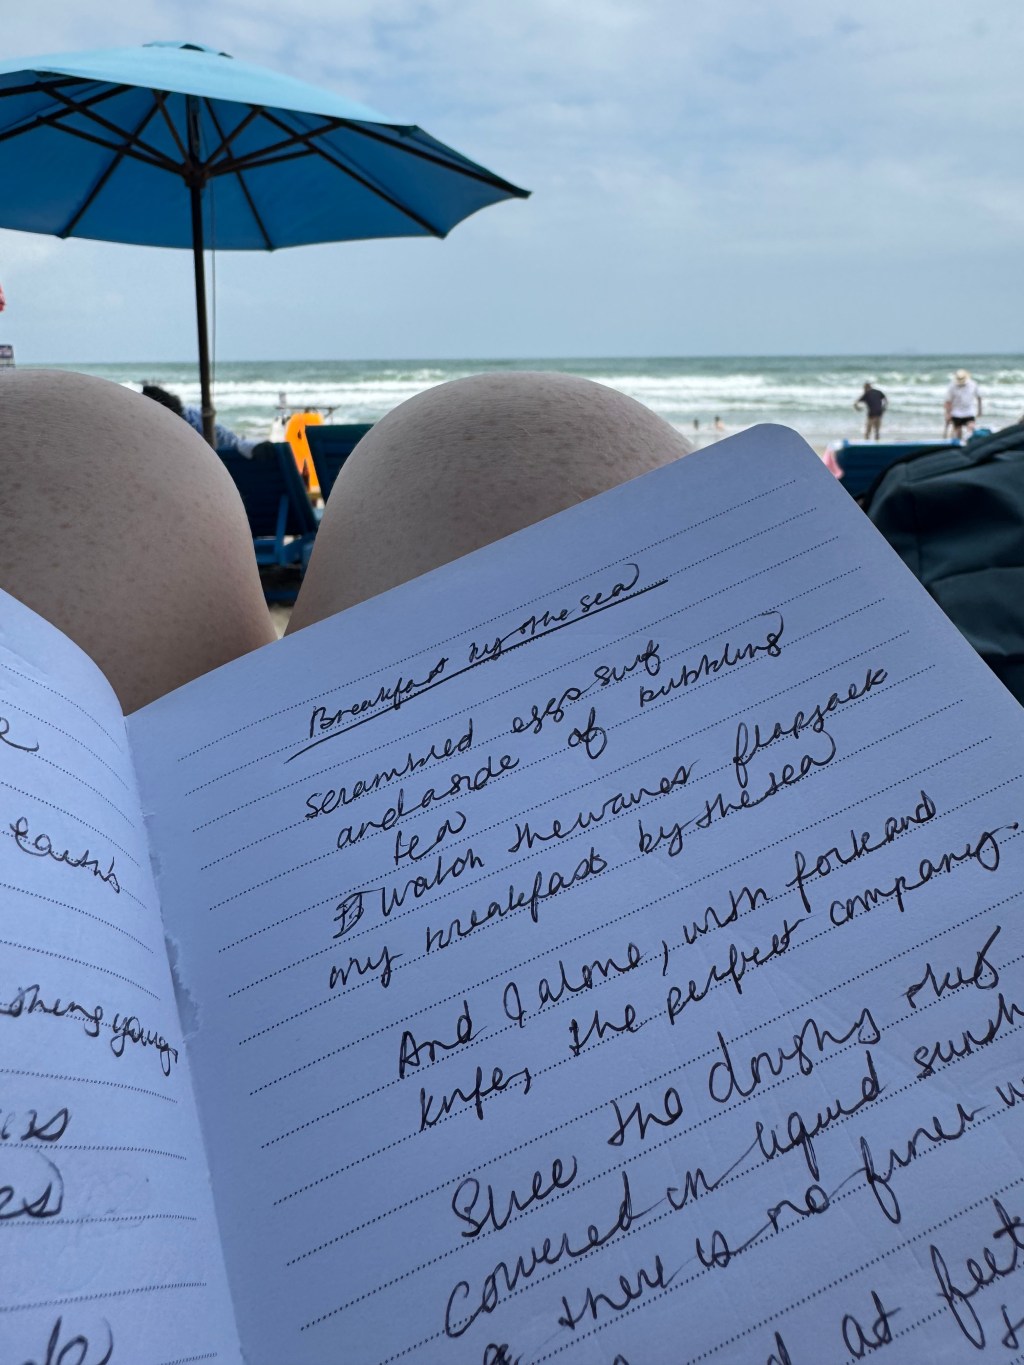 earth's
young,
Breakfast by the sea
scrambled eggs surf
and a side of bubbling
tea
watch the waves flapjack
my breakfast by the sea
And I alone, with fork and
knife, the perfect company.
Slice the doughy
covered in liquid
there is no finer
at feet